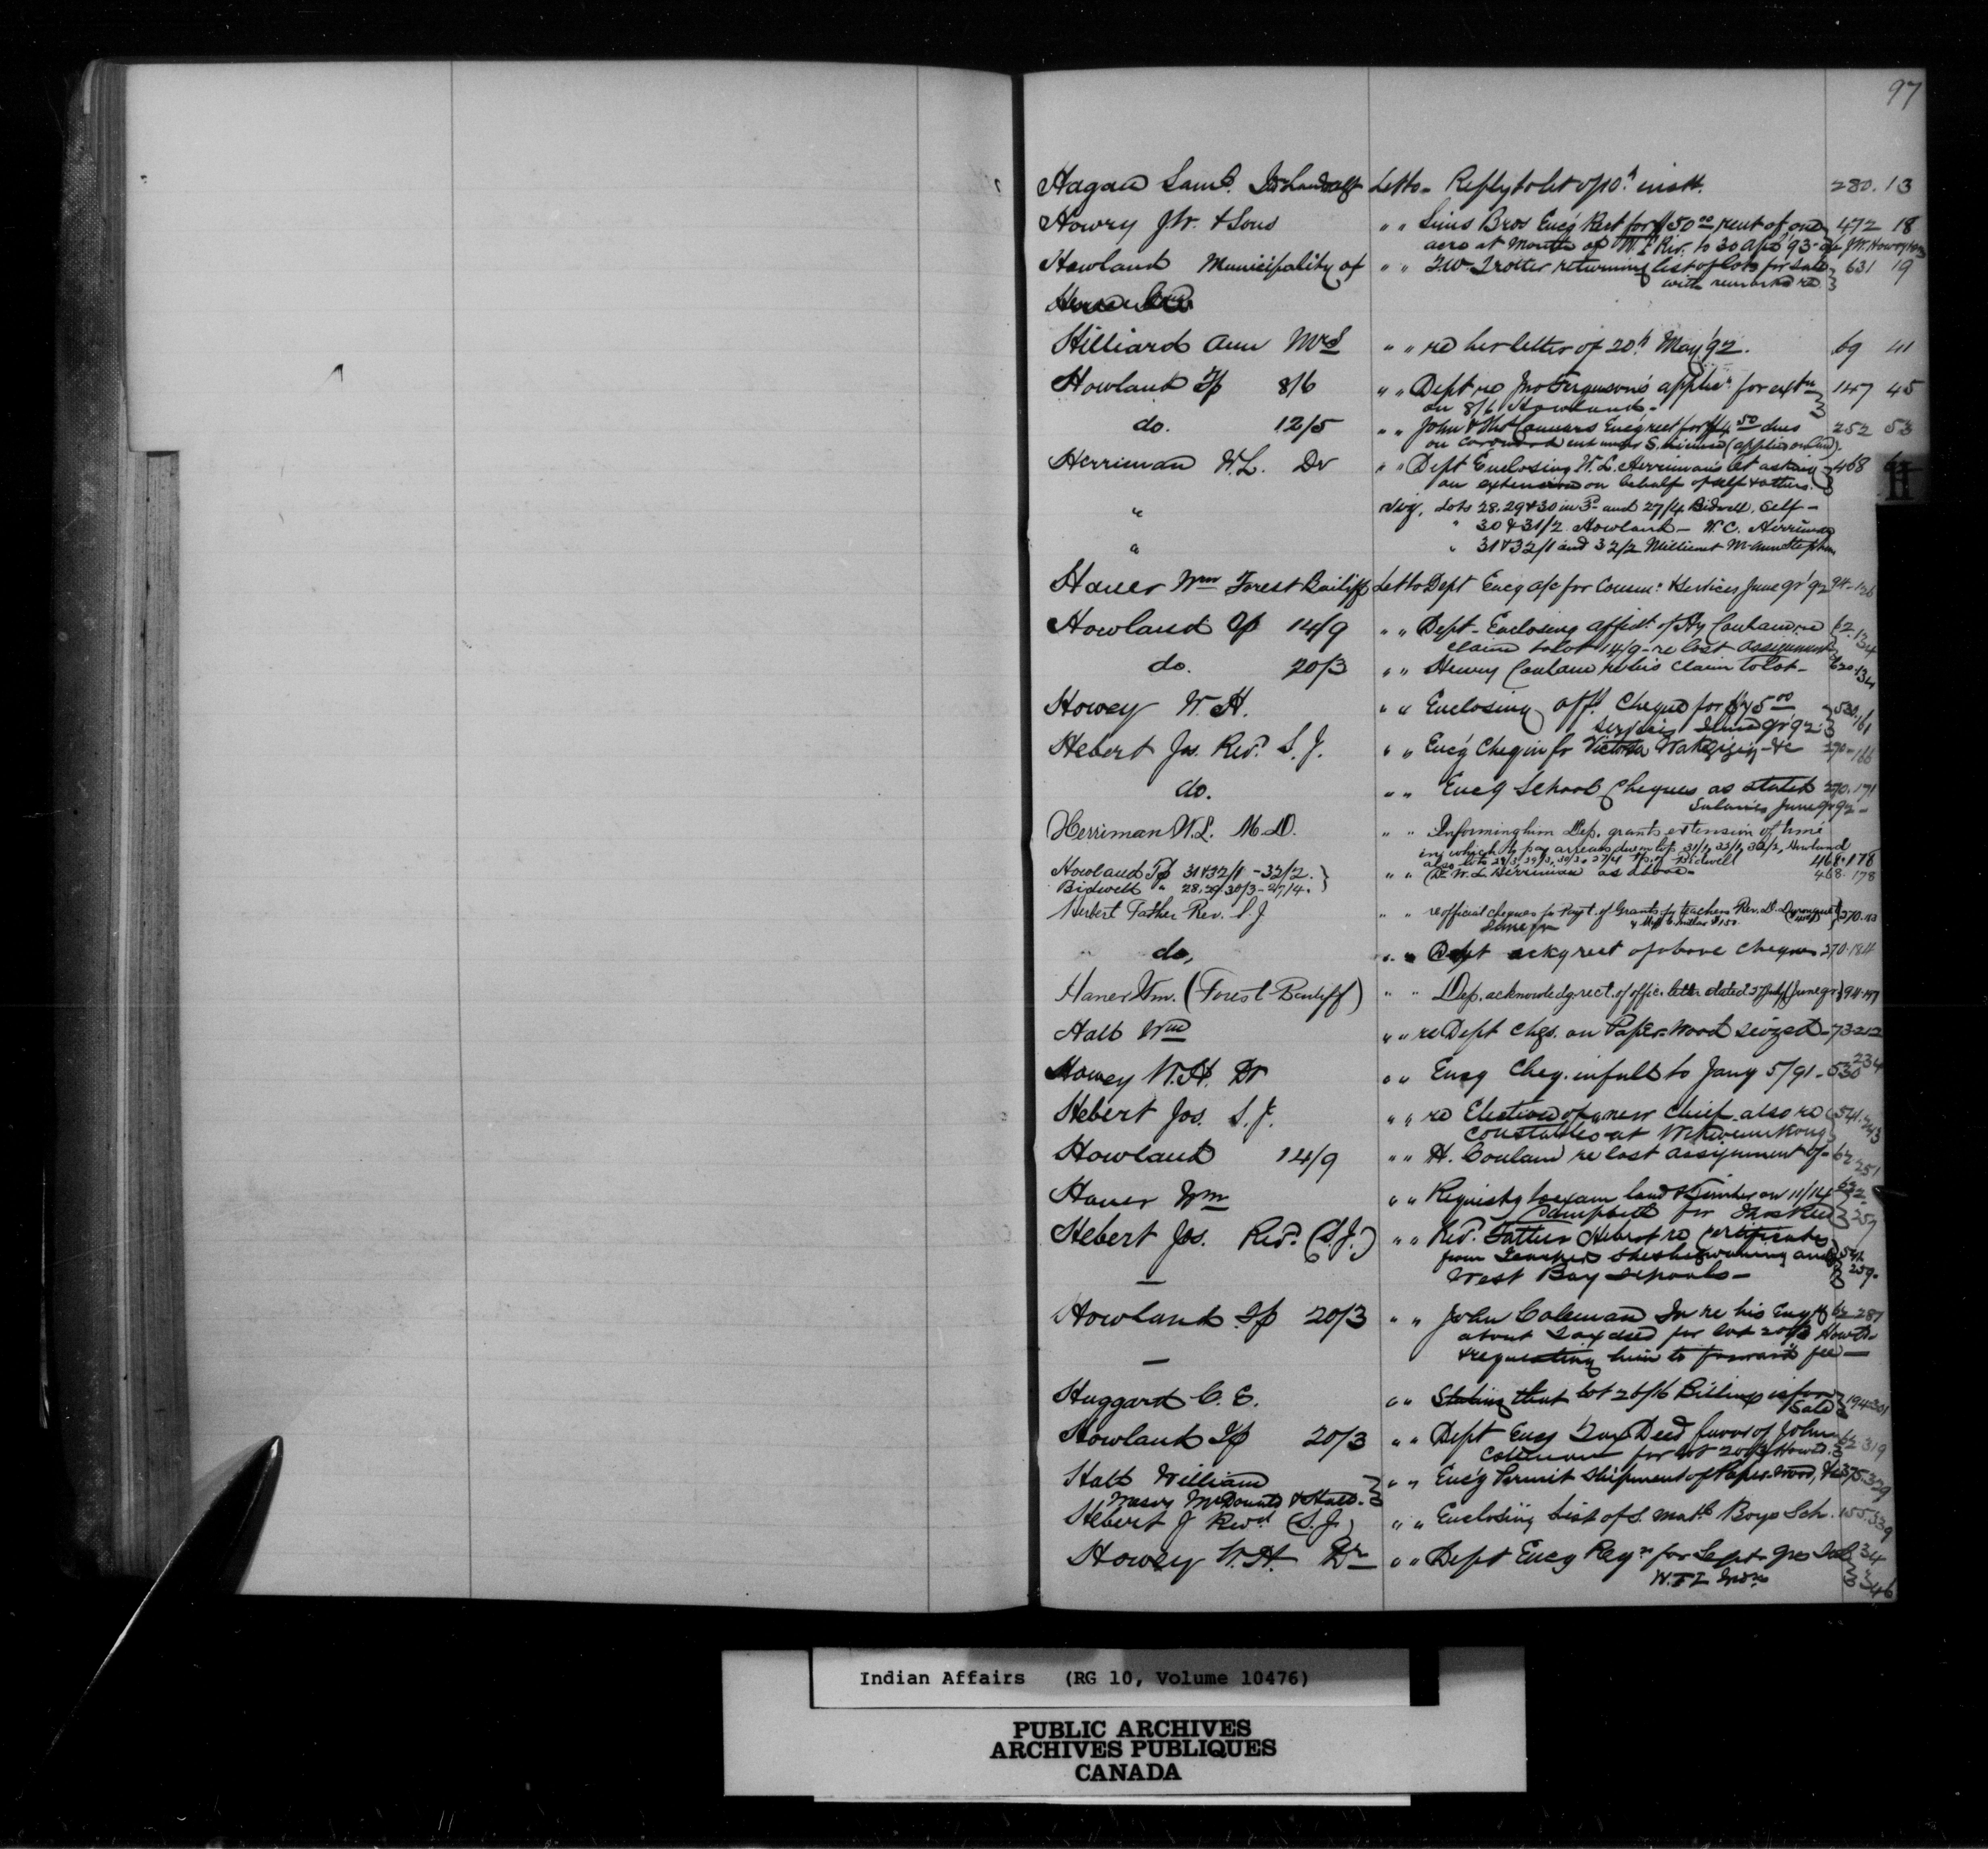 97
Hagan Saml. Let to - Reply to let of 10th inst. 280. 13
Howry J.W. & Sons " " Sims Bros Enc'g Rect for $50 00 rent of one 472 18
acre at Mouth of to 30 Apl '93 - J.W. Howry
Howland Municipality of " " Trotter returning list of lots for sale 631 19
with remarks re
Hilliard Ann Mrs " " re her letter of 20th May '92. 69 41
Howland Tp 8/6 " " Dept re Jno Ferguson's applicn for extn 147 45
on 8/6 Howland -
do. 12/5 " " John & Connors Enc'g rect for $4 50 dues 252 53
on cut under S.
Herriman W.L. Dr " " Dept Enclosing W.L. Herriman's let asking 468
an extension on behalf of self & others.
" viz, Lots 28.29 & 30 in 3 and 27/4 Bidwell, self -
" 30 & 31/2 Howland - W.C. Herriman
" " 31 & 32/1 and 32/2
Haner Wm Forest Bailiff Let to Dept Encg a/c for Services June qr '92 94-126
Howland Tp 14/9 " " Dept - Enclosing affidt. of Hy Coulam re 62.134
claim to lot 14/9 - re lost assignment
do. 20/3 " " Henry Coulam re his claim to lot - 620.134
Howey W.H. " " Enclosing off. Cheque for $75 00 530.161
services June qr '92
Hebert Jos. Revd. S.J. " " Enc'g Cheq in fr Victoria &c 290-166
do. " " Encg School Cheques as stated 270.171
Salaries June qr 92 -
Herriman W.L. M.D. " " Informing him Dep. grants extension of time
in which to pay arrears due on lots 31/1, 32/1, 32/2, Howland
also lots 28/3, 29/3, 30/3 & 27/4 Tp. of Bidwell 468.178
Howland Tp 31 & 32/1 - 32/2. " " Dr. W.L. Herriman as above - 468.178
Bidwell " 28, 29, 30/3 - 27/4.
Herbert Father Rev. S.J. " " re official cheques for Payt. of Grants for teachers Rev. D. 270.
do, " " Dept ackg rect of above cheques 270.184
Haner Wm. (Forest Bailiff) " " Dep. acknowledg. rect. of offic. letter dated 27 July (June qr) 94.
Hall Wm " " re Dept chgs. on Paper-Wood seized - 73-212
Howey W.H. Dr " " Encg Cheq. in full to Jany 5/91 - 530 234
Hebert Jos. S.J. " " re Election of new Chief also re 541.243
Constables at Wikwemikong
Howland 14/9 " " H. Coulam re lost assignment of - 62 251
Haner Wm " " Requestg to exam land & Timber on 11/14
Campbell for 257
Hebert Jos. Revd. (S.J.) " " Revd. Father Hebert re certificates
from Teachers Sheshegwaning and
West Bay schools - 259.
Howland Tp 20/3 " " John Coleman In re his Enqy 62-287
about Tax deed for lot 20/3 Howld
& requesting him to forward fee -
Huggard C.E. " " Stating that lot 26/16 Billings is for 194.301
Sale
Howland Tp 20/3 " " Dept Encg Tax Deed favor of John 62.319
Coleman for lot 20/3 Howld.
Hall William " " Enc'g Permit Shipment of Paper Wood, &c 375.329
Messrs McDonald & Hall.
Hebert J Revd (S.J.) " " Enclosing List of S. Boys Sch. 155.339
Howey W.H. Dr " " Dept Encg for Sept qr 34
346
H
Indian Affairs (RG 10, Volume 10476)
PUBLIC ARCHIVES
ARCHIVES PUBLIQUES
CANADA